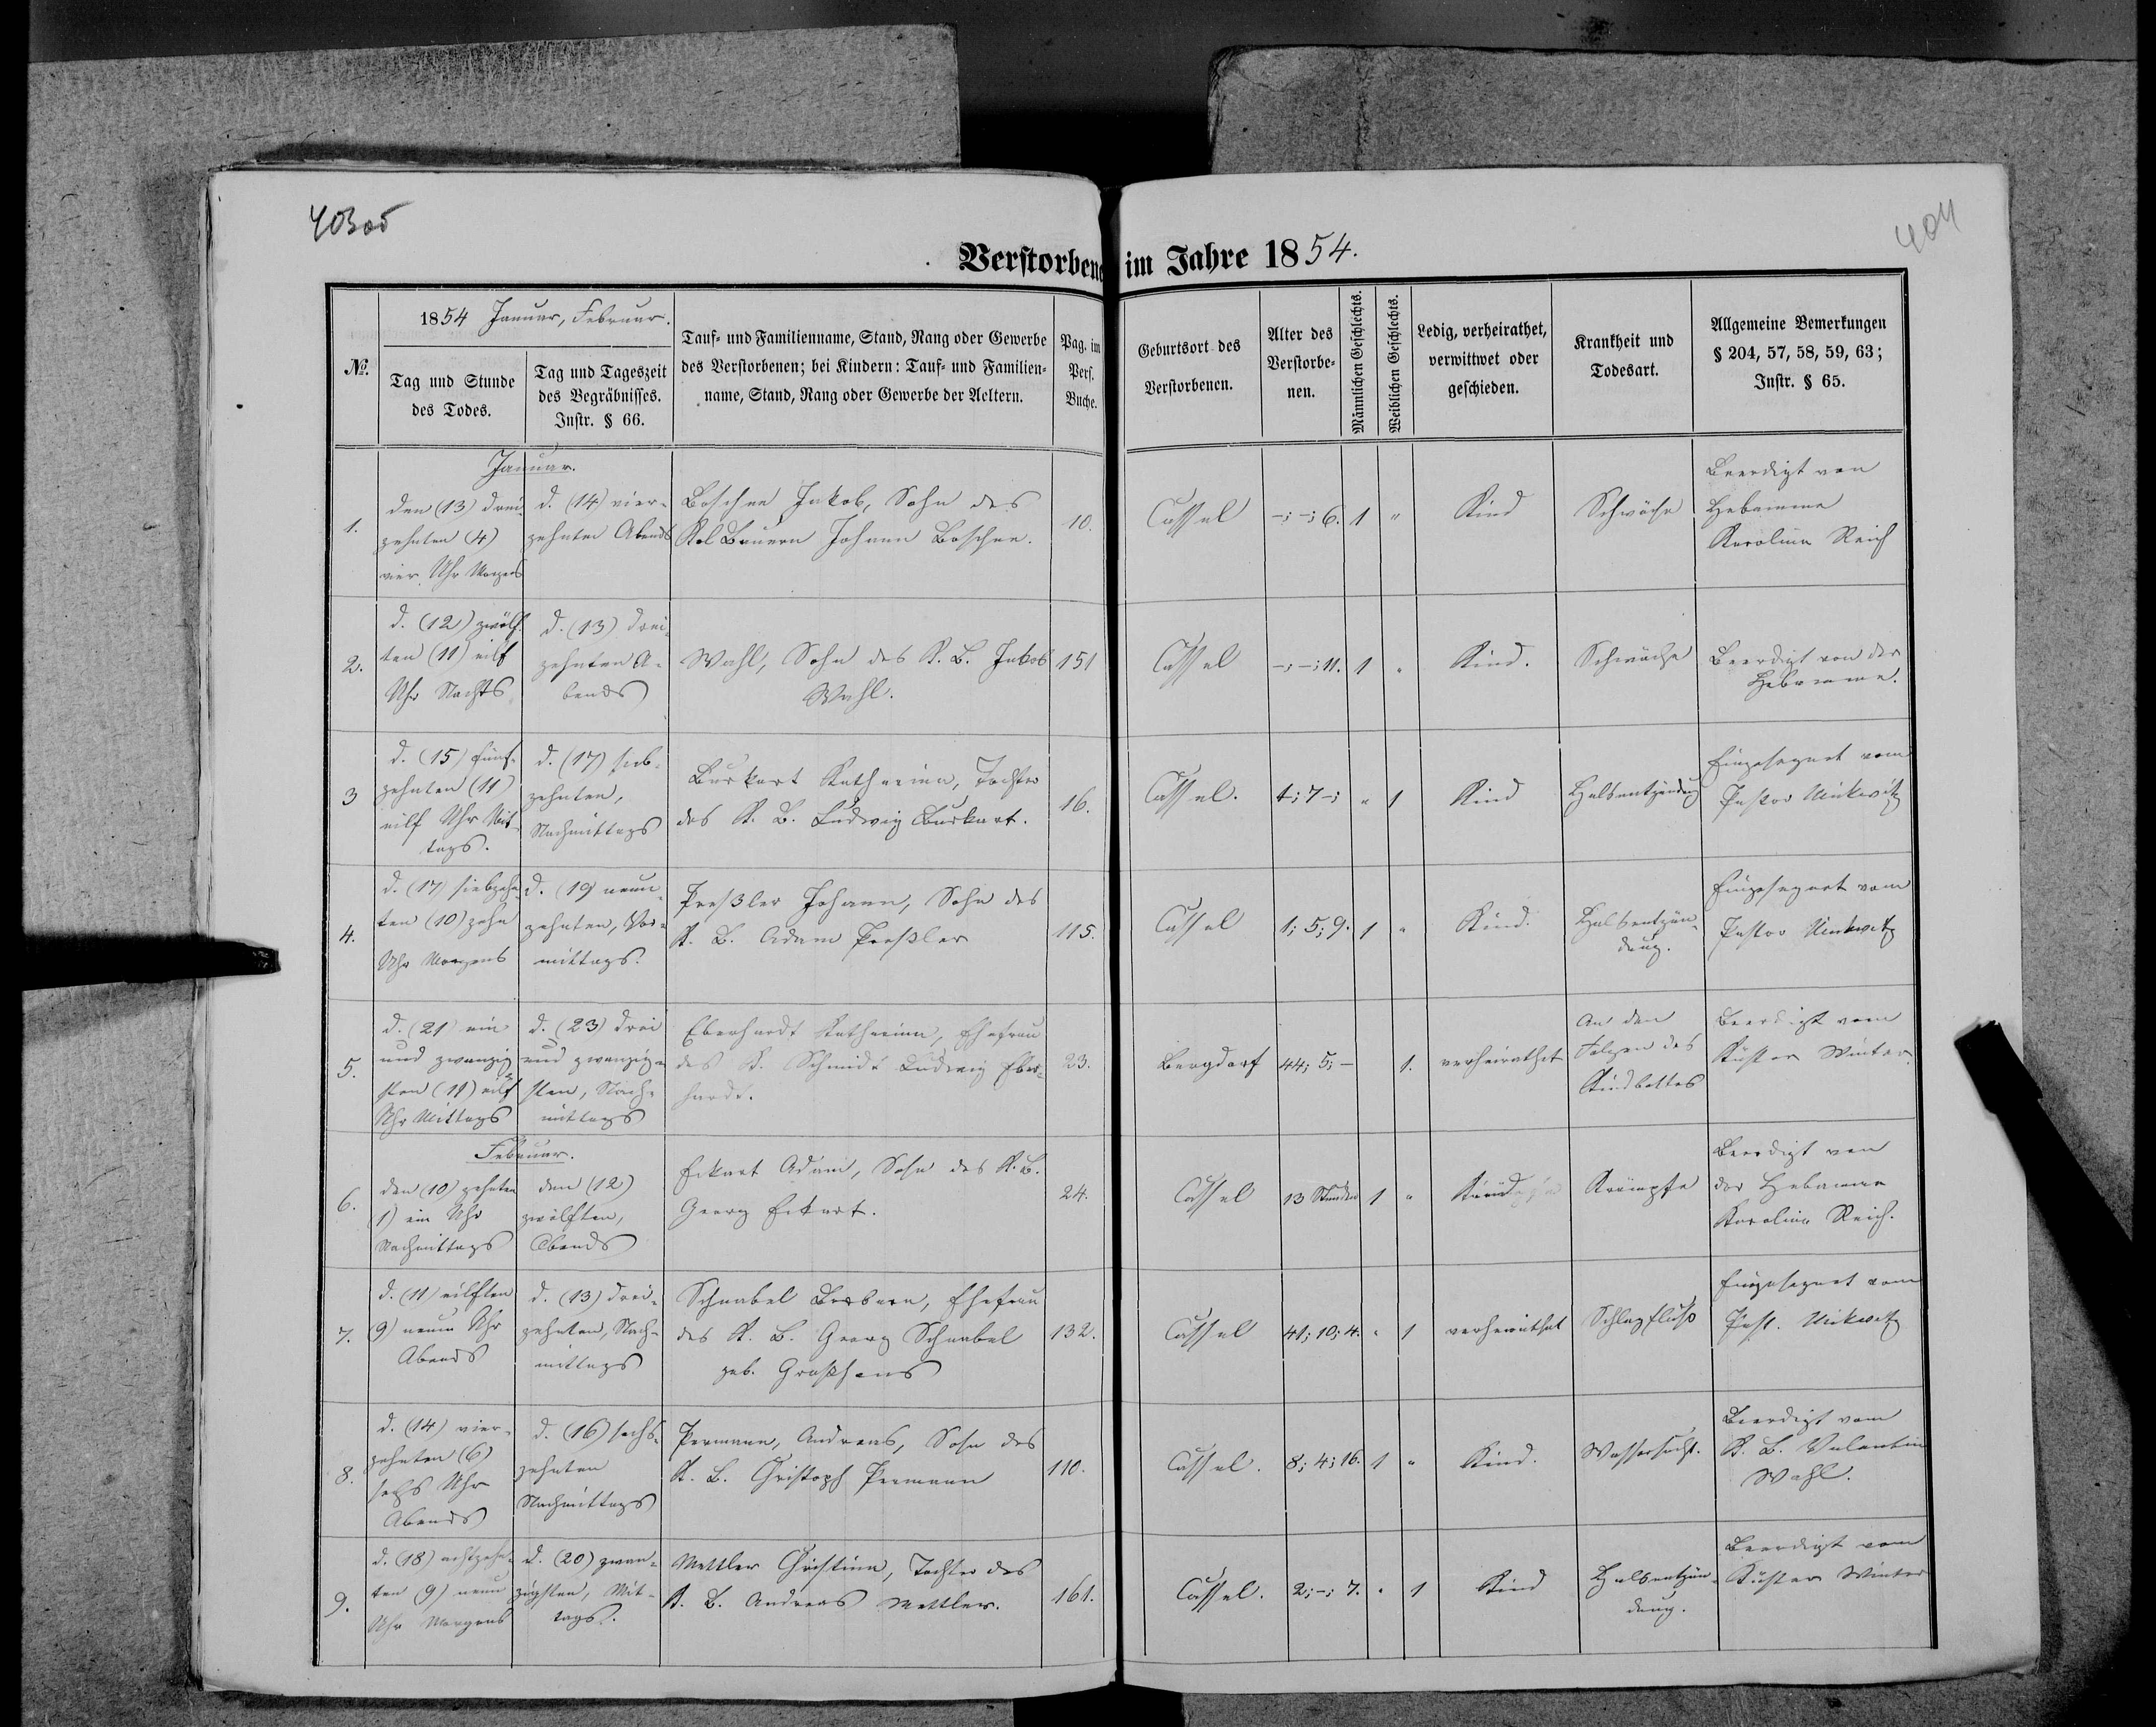 403об
404
Verstorbene im Jahre 1854.
№.
1854 Januar, Februar.
Tag und Stunde
des Todes.
Tag und Tageszeit
des Begräbnisses.
Instr. § 66.
Tauf- und Familienname, Stand, Rang oder Gewerbe
des Verstorbenen; bei Kindern: Tauf- und Familien-
name, Stand, Rang oder Gewerbe der Aeltern.
Pag. im
Pers.
Buche.
Geburtsort des
Verstorbenen.
Alter des
Verstorbe-
nen.
Männlichen Geschlechts.
Weiblichen Geschlechts.
Ledig, verheirathet,
verwittwet oder
geschieden.
Krankheit und
Todesart.
Allgemeine Bemerkungen
§ 204, 57, 58, 59, 63;
Instr. § 65.
Januar.
1.
den (13) drei-
zehnten (4)
vier Uhr Morgens
d. (14) vier-
zehnten Abends
Boschee Jakob, Sohn des
Kol Bauern Johann Boschee.
10.
Cassel
-; -; 6.
1
"
Kind
Schwäche
Beerdigt von
Hebamme
Karolina Reich
2.
d. (12) zwölf-
ten (11) eilf
Uhr Nachts
d. (13) drei-
zehnten A-
bends
Wahl, Sohn des K. B. Jakob
Wahl.
151
Cassel
-; -; 11.
1
"
Kind.
Schwäche
Beerdigt von der
Hebamme.
3
d. (15) fünf-
zehnten (11)
eilf Uhr Mit-
tags.
d. (17) sieb-
zehnten,
Nachmittags
Burkart Katharina, Tochter
des K. B. Ludwig Burkart.
16.
Cassel.
4; 7 -;
"
1
Kind
Halsentzündung
Eingesegnet vom
Pastor
4.
d. (17) siebzehn-
ten (10) zehn
Uhr Morgens
d. (19) neun-
zehnten, Vor-
mittags.
Preßler Johann, Sohn des
K. B. Adam Preßler
115.
Cassel
1; 5; 9.
1
"
Kind.
Halsentzün-
dung.
Eingesegnet vom
Pastor
5.
d. (21) ein
und zwanzig-
sten (11) eilf
Uhr Mittags
d. (23) drei
und zwanzig-
sten, Nach-
mittags
Eberhardt Katharina, Ehefrau
des K. Schmidt Ludwig Eber-
hardt.
23.
Bergdorf
44; 5; -
1.
verheirathet
An den
Folgen des
Kindbettes
Beerdigt vom
Küster Winter.
Februar.
6.
den (10) zehnten
(1) ein Uhr
Nachmittags
den (12)
zwölften,
Abends
Eckart Adam, Sohn des K. B.
Georg Eckart.
24.
Cassel
13 Stunden
1
"
Kind
Krämpfe
Beerdigt von
der Hebamme
Karolina Reich.
7.
d. (11) eilften
(9) neun Uhr
Abends
d. (13) drei-
zehnten, Nach-
mittags
Schnabel Barbara, Ehefrau
des K. B. Georg Schnabel
geb. Großhans
132.
Cassel
41; 10; 4.
"
1
verheirathet
Schlagfluß
Eingesegnet vom
Past.
8.
d. (14) vier-
zehnten (6)
sechs Uhr
Abends
d. (16) sechs-
zehnten
Nachmittags
Permann, Andreas, Sohn des
K. B. Christoph Permann
110.
Cassel.
8; 4; 16.
1
"
Kind.
Wassersucht.
Beerdigt vom
K. B. Valentin
Wahl.
9.
d. (18) achtzehn-
ten (9) neun
Uhr Morgens
d. (20) zwan-
zigsten, Mit-
tags.
Mettler Christina, Tochter des
K. B. Andreas Mettler.
161.
Cassel.
2; -; 7.
"
1
Kind
Halsentzün-
dung.
Beerdigt vom
Küster Winter